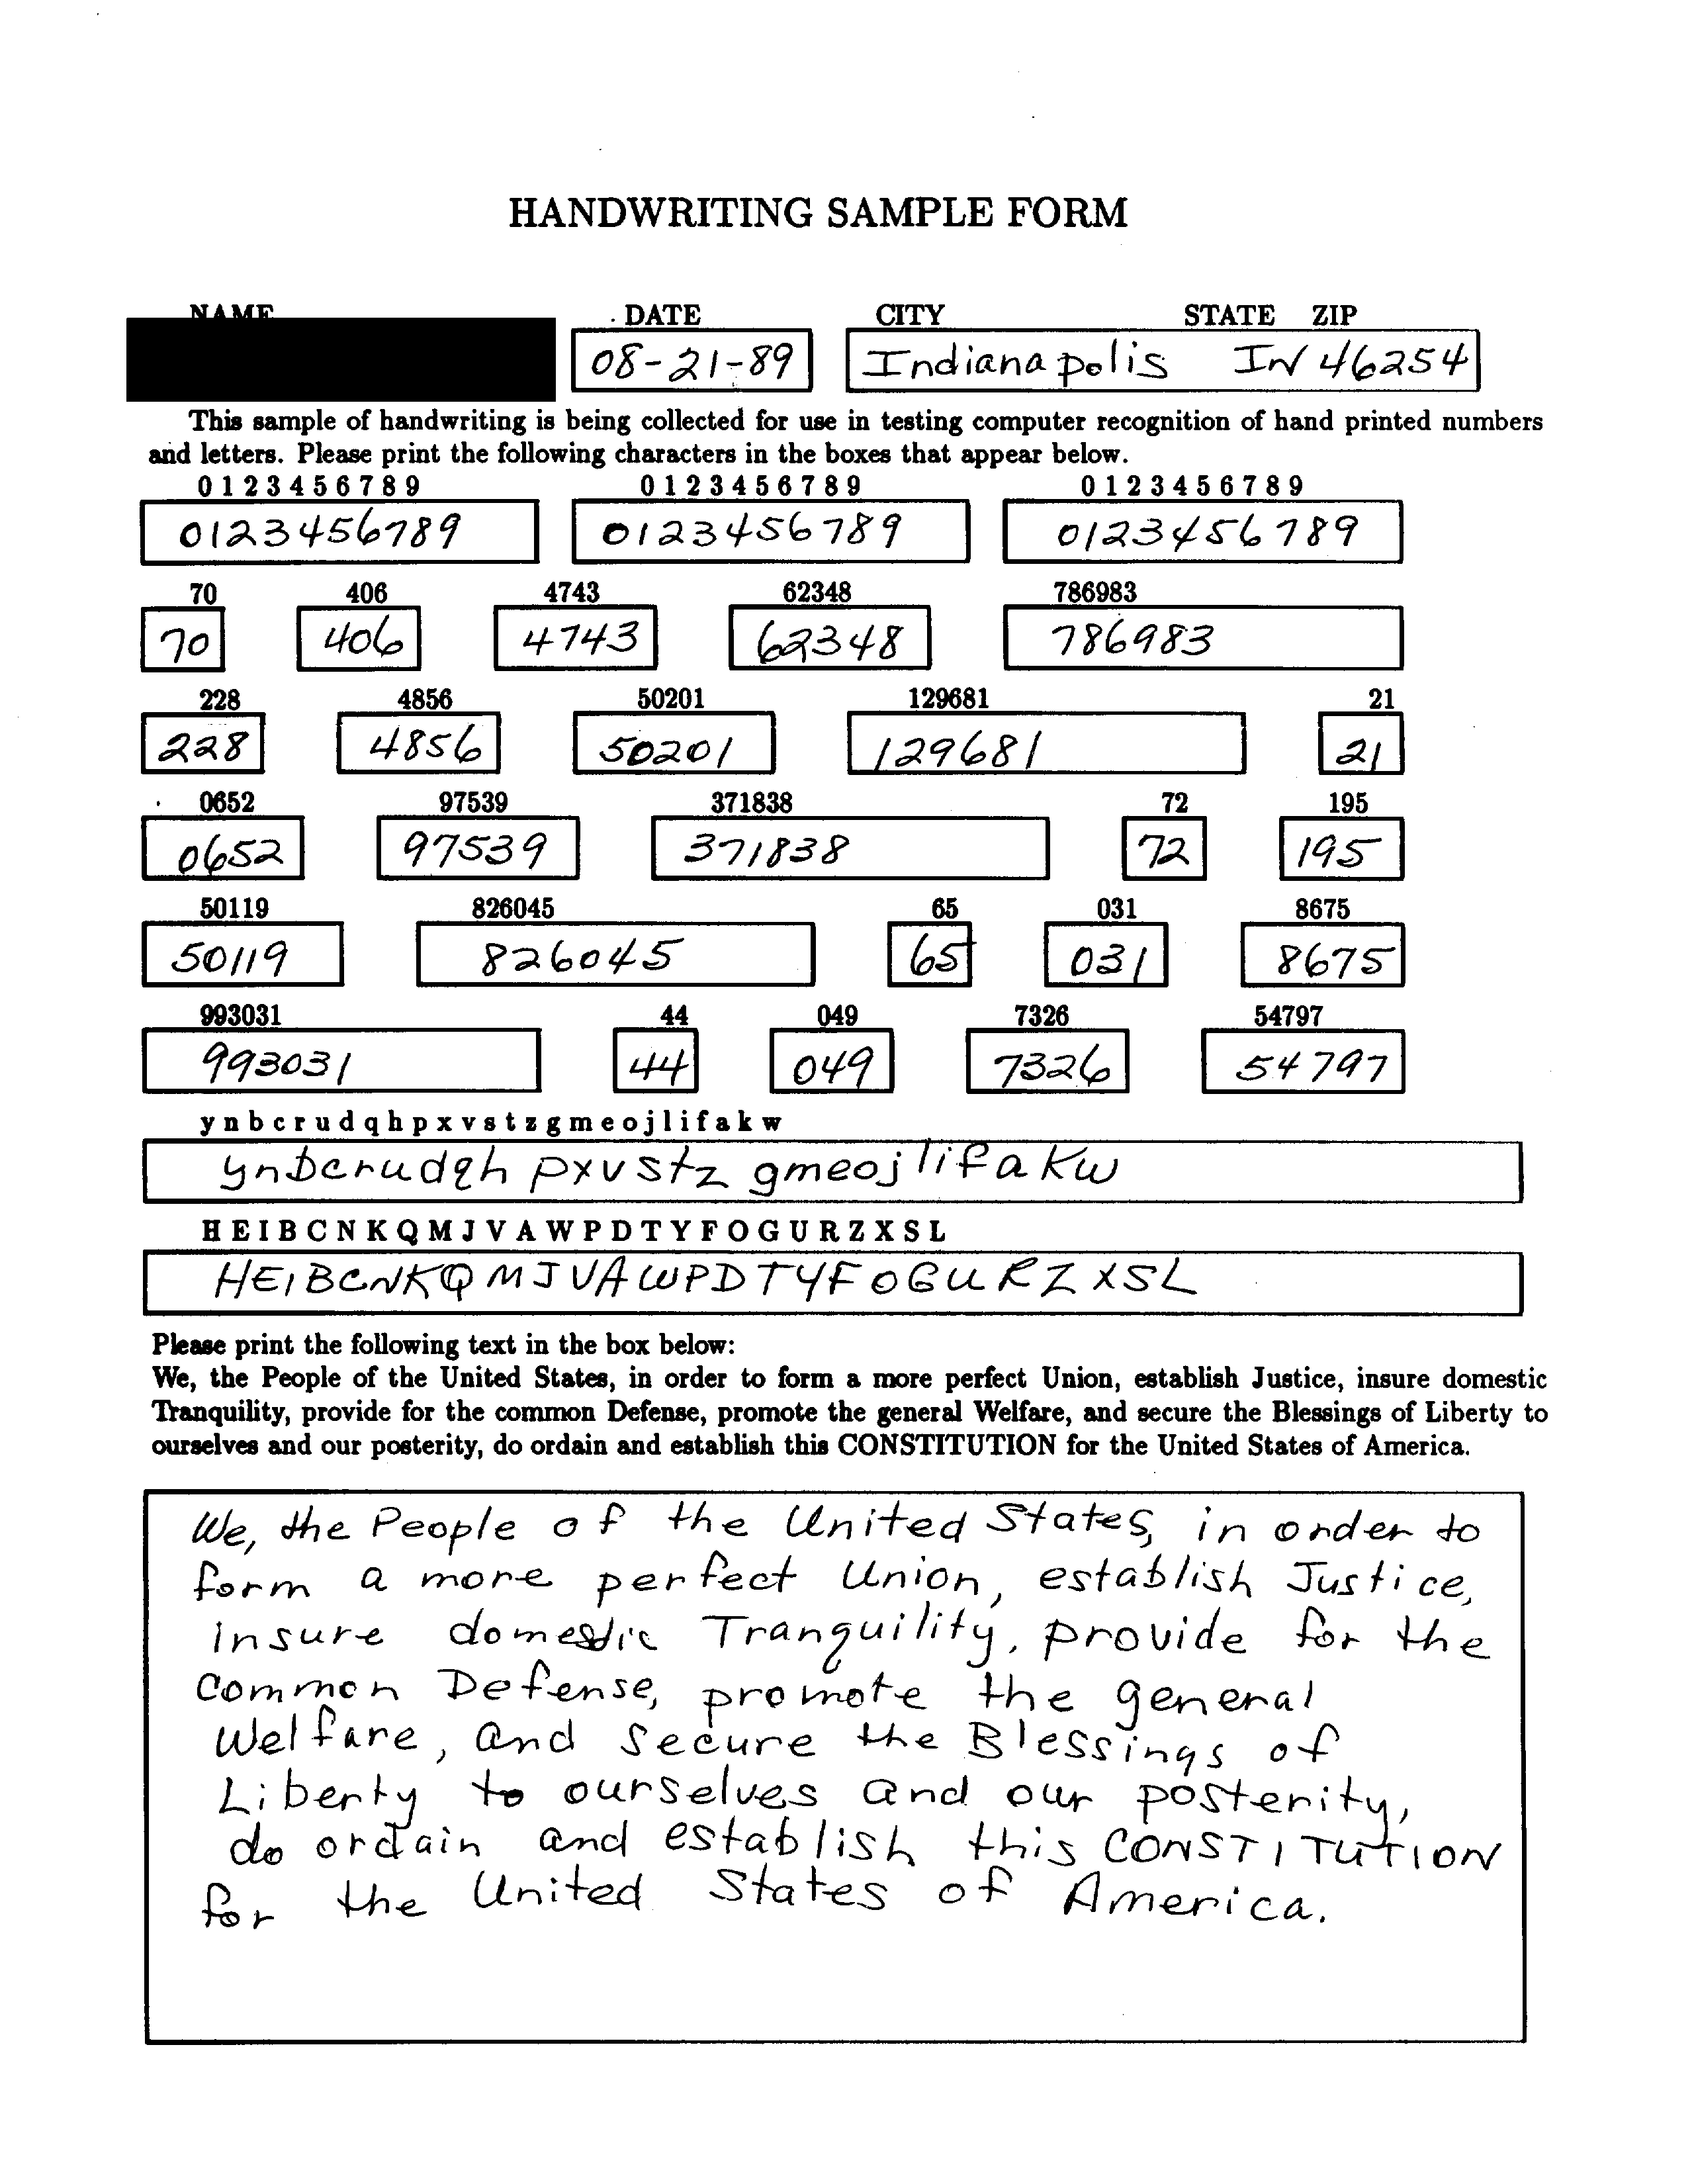 HANDWRITING SAMPLE FORM
NAME DATE CITY STATE ZIP
08-21-89 Indianapolis IN 46254
This sample of handwriting is being collected for use in testing computer recognition of hand printed numbers
and letters. Please print the following characters in the boxes that appear below.
0 1 2 3 4 5 6 7 8 9 0 1 2 3 4 5 6 7 8 9 0 1 2 3 4 5 6 7 8 9
0123456789 0123456789 0123456789
70 406 4743 62348 786983
70 406 4743 62348 786983
228 4856 50201 129681 21
228 4856 50201 129681 21
0652 97539 371838 72 195
0652 97539 371838 72 195
50119 826045 65 031 8675
50119 826045 65 031 8675
993031 44 049 7326 54797
993031 44 049 7326 54797
y n b c r u d q h p x v s t z g m e o j l i f a k w
ynbcrudqh pxvstz gmeojlifakw
H E I B C N K Q M J V A W P D T Y F O G U R Z X S L
HEIBCNKQMJVAWPDTYFOGURZXSL
Please print the following text in the box below:
We, the People of the United States, in order to form a more perfect Union, establish Justice, insure domestic
Tranquility, provide for the common Defense, promote the general Welfare, and secure the Blessings of Liberty to
ourselves and our posterity, do ordain and establish this CONSTITUTION for the United States of America.
We, the People of the United States, in order to
form a more perfect Union, establish Justice,
insure domestic Tranquility, provide for the
common Defense, promote the general
Welfare, and secure the Blessings of
Liberty to ourselves and our posterity,
do ordain and establish this CONSTITUTION
for the United States of America.